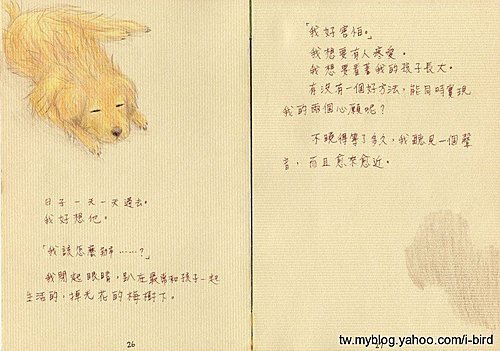 日子一天一天過去。
我好想他。
「我該怎麼辦……?」
我閉起眼睛,趴在最常和孩子一起
生活的,掉光花的梅樹下。
26
「我好害怕。」
我想要有人疼愛。
我想要看著我的孩子長大。
有沒有一個好方法,能同時實現
我的兩個心願呢?
不曉得等了多久,我聽見一個聲
音,而且愈來愈近。
tw.myblog.yahoo.com/i-bird